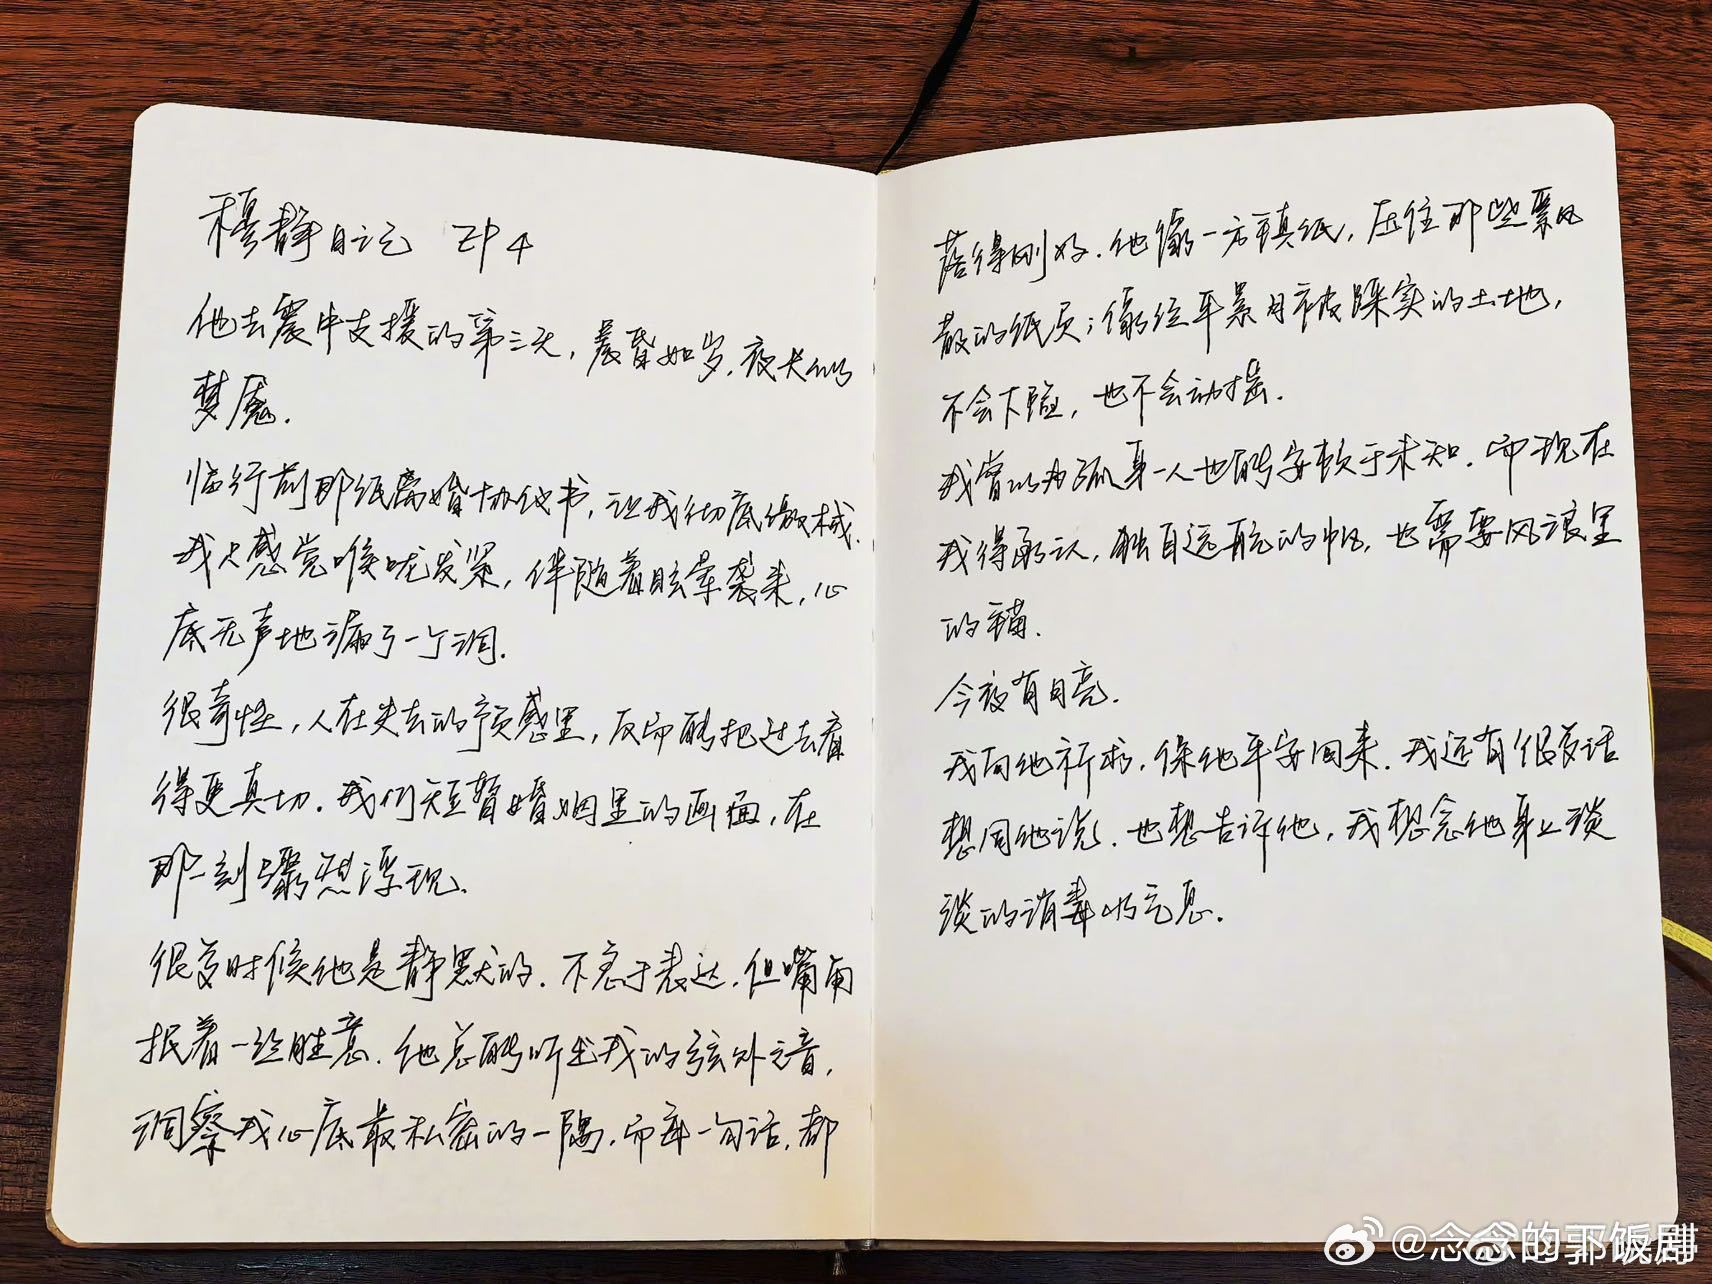 穆静日记 EP4
他去震中支援的第三天，晨昏如岁，夜长如
梦魇.
临行前那纸离婚协议书，让我彻底缴械.
我只感觉喉咙发紧，伴随着眩晕袭来，心
底无声地漏了一个洞.
很奇怪，人在失去的预感里，反而能把过去看
得更真切.我们短暂婚姻里的画面，在
那一刻骤然浮现.
很多时候他是静默的.不急于表达.但嘴角
抿着一丝胜意.他总能听出我的弦外之音，
洞察我心底最私密的一隅.而每一句话.都
落得刚好.他像一方镇纸，压住那些飘风
散的纸页；像经年累月被踩实的土地，
不会下陷，也不会动摇.
我曾以为孤身一人也能安然于未知.而现在
我得承认，独自远航的帆.也需要风浪里
的锚.
今夜有月亮.
我向他祈求，保他平安回来.我还有很多话
想同他说.也想告诉他，我想念他身上淡
淡的消毒水气息.
@念念的郭饭剧